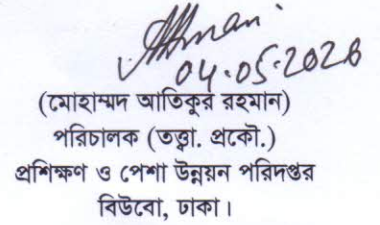 04-05-2026
(মোহাম্মদ আতিকুর রহমান)
পরিচালক (তত্ত্বা. প্রকৌ.)
প্রশিক্ষণ ও পেশা উন্নয়ন পরিদপ্তর
বিউবো, ঢাকা।